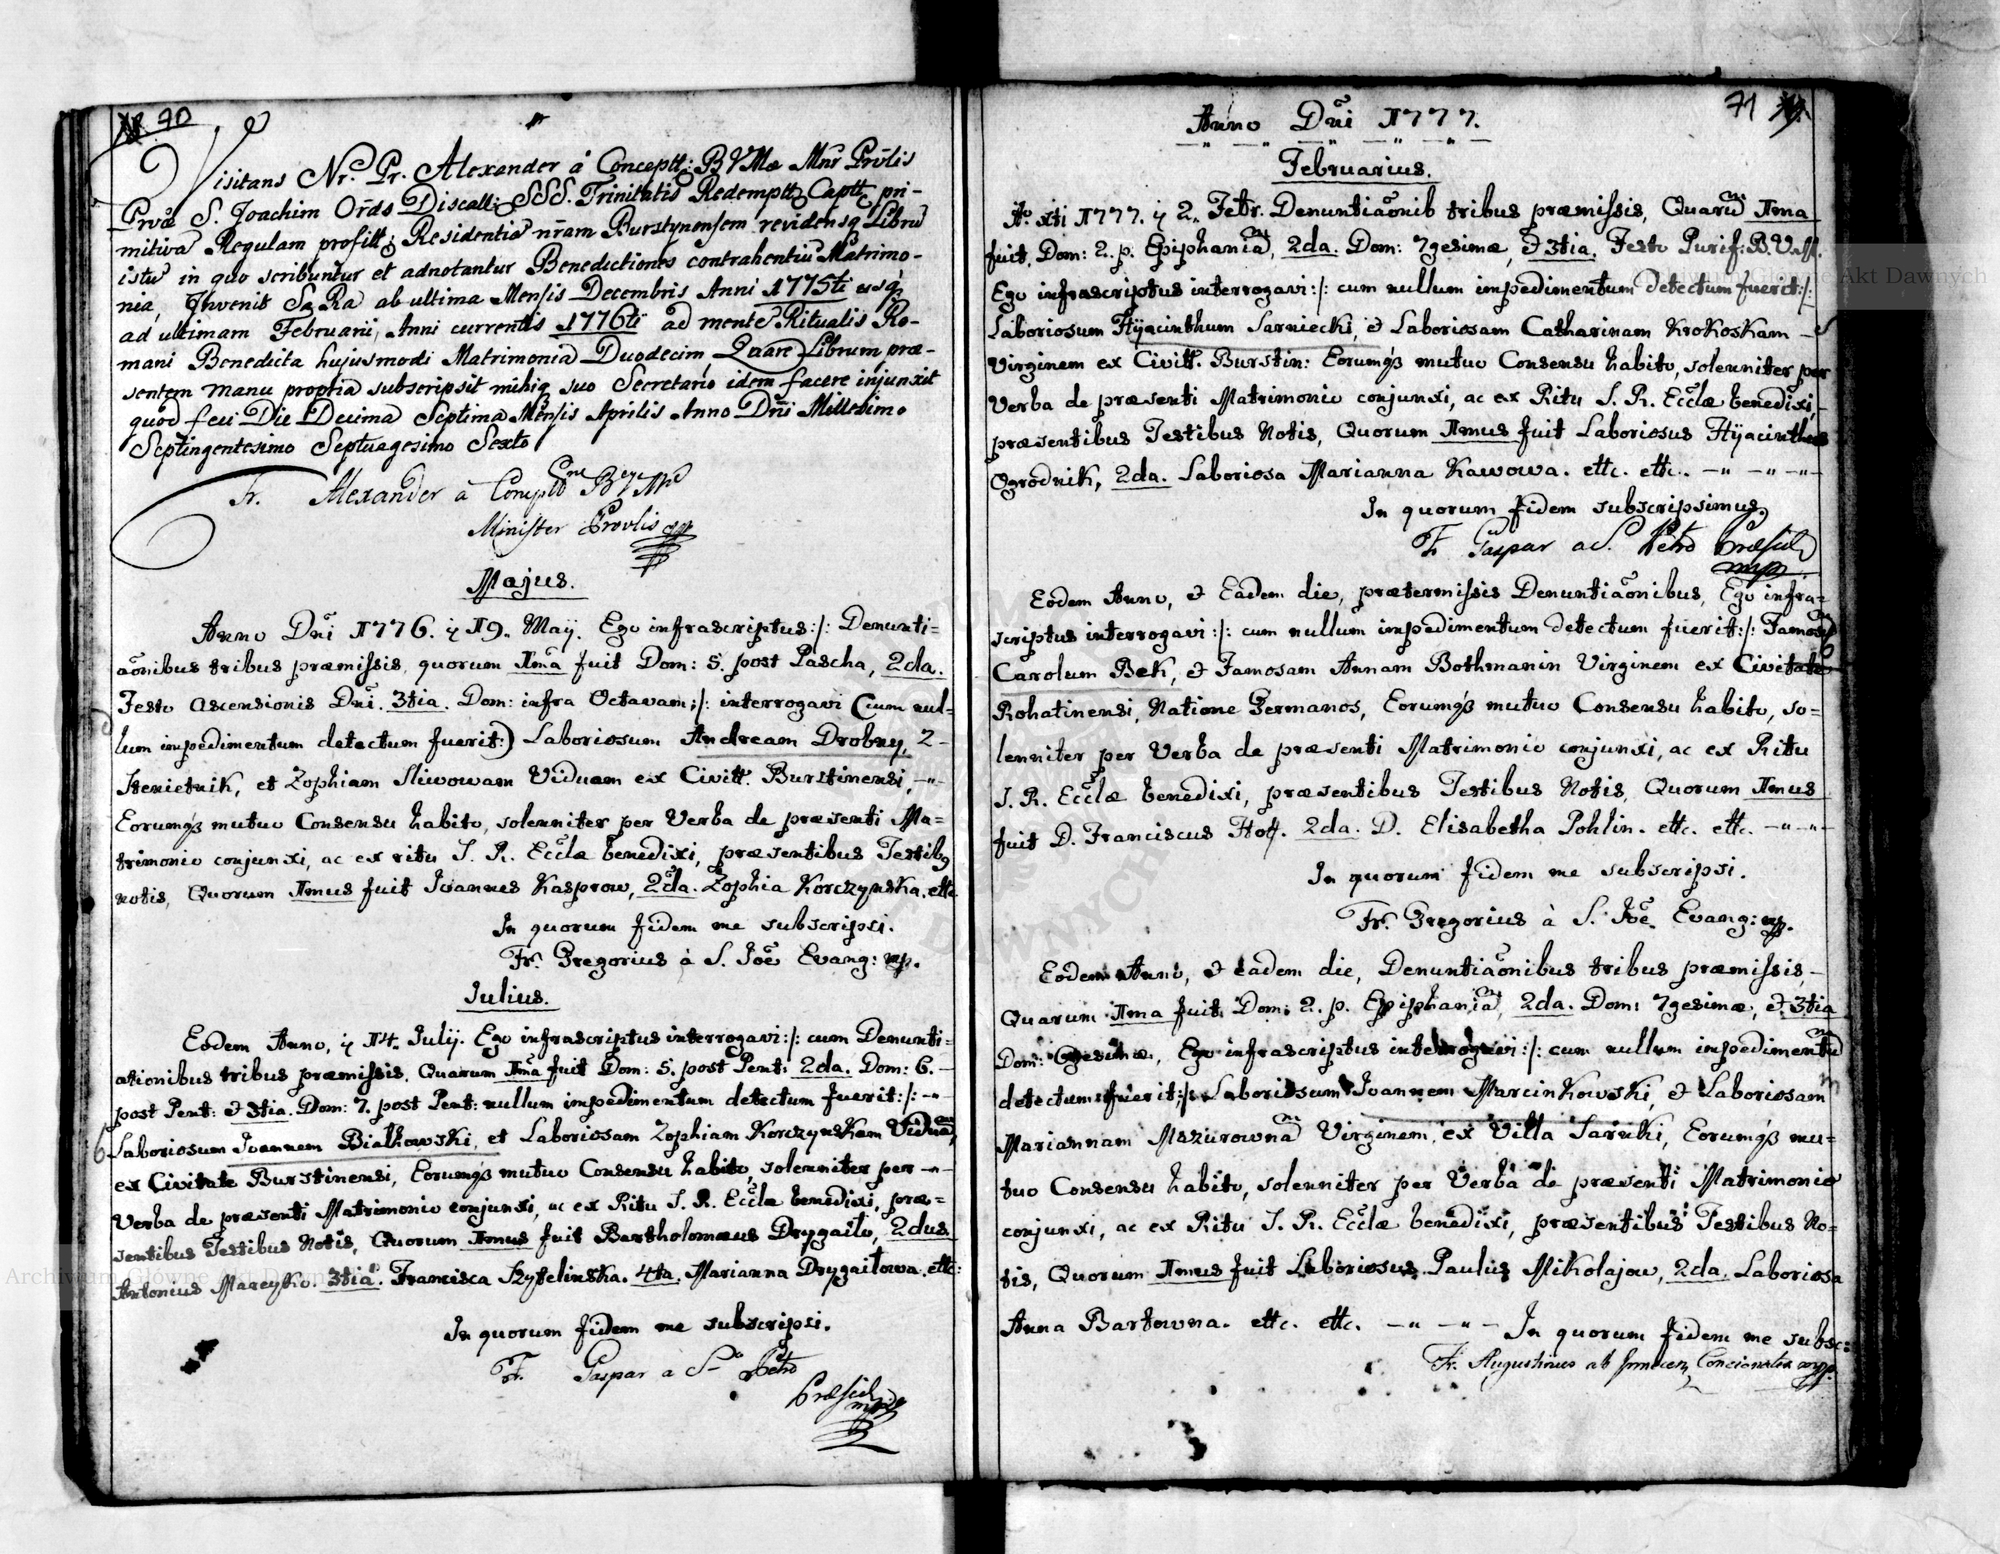 70
Visitans Nr. Pr. Alexander â Conceptt: BVMæ Mnr Prvlis
Prvæ S. Joachim Ords Discall: SSS. Trinitatis Redemptt Captt pri-
mitiva Regulam profitt; Residentiã nr̃am Burstynensem revidensq Librũ
istũ in quo scribuntur et adnotantur Benedictiones contrahentiũ Matrimo-
nia, Invenit Sa Ra ab ultima Mensis Decembris Anni 1775ti usq,
ad ultimam Februarii, Anni currentis 1776ti ad mentẽ Ritualis Ro-
mani Benedicta hujusmodi Matrimonia Duodecim Quare Librum præ-
sentem manu propria subscripsit mihiq suo Secretario idem facere injunxit
quod feci Die Decima Septima Mensis Aprilis Anno Dñi Millesimo
Septingentesimo Septuagesimo Sexto
Fr. Alexander â Conceptt BVM
Minister Provlis mp
Majus.
Anno Dñi 1776. ÿ 19. Maÿ. Ego infrascriptus:/: Denunti=
aõnibus tribus præmissis, quorum 1ma fuit Dom: 5. post Pascha, 2da.
Festo Ascensionis Dñi. 3tia. Dom: infra Octavam:/: interrogavi (cum nul-
lum impedimentum detectum fuerit:) Laboriosum Andream Drobny, 2-
Stenietnik, et Zophiam Sliwowam Viduam ex Civitt. Burstinensi, -"-
Eorumqz mutuo Consensu habito, solenniter per Verba de præsenti Ma=
trimonio conjunxi, ac ex ritu S. R. Ecclæ benedixi, præsentibus Testibq
notis, Quorum 1mus fuit Joannes Kasprow, 2da. Zophia Korczynska. ettc
In quorum fidem me subscripsi.
Fr. Gregorius à S. Joẽ Evang: mp.
Julius.
Eodem Anno, ÿ 14. Julÿ. Ego infrascriptus interrogavi:/: cum Denunti=
ationibus tribus præmissis. Quarum 1ma fuit Dom: 5. post Pent: 2da. Dom: 6.-
post Pent: & 3tia. Dom: 7. post Pent: nullum impedimentum detectum fuerit:/: -"-
Laboriosum Joannem Białkowski, et Laboriosam Zophiam Korczynskam Viduã,
ex Civitate Burstinensi, Eorumqz mutuo Consensu habito, solenniter per -"-
Verba de præsenti Matrimonio conjunxi, ac ex Ritu S. R. Ecclæ benedixi, præ=
sentibus Testibus Notis, Quorum 1mus fuit Bartholomæus Drygailo, 2dus.
Antonius Maceyko. 3tia. Francisca Szybelinska. 4ta. Marianna Drygailowa. ettc:
In quorum fidem me subscripsi.
Fr. Gaspar a S. Petro
Præsid
mp
71
Anno Dñi 1777.
Februarius.
Aº. xti 1777. ÿ 2. Febr. Denuntiaõnib tribus præmissis, Quarũ 1ma
fuit, Dom: 2. p. Epiphaniã, 2da. Dom: 7gesimæ, & 3tia. Festo Purif: B.V.M.
Ego infrascriptus interrogavi:/: cum nullum impedimentum detectum fuerit:/:
Laboriosum Hÿacinthum Sarniecki, & Laboriosam Catharinam Krokoskam -
Virginem ex Civitt. Burstin: Eorumqz mutuo Consensu habito, solenniter per
Verba de præsenti Matrimonio conjunxi, ac ex Ritu S. R. Ecclæ benedixi,
præsentibus Testibus Notis, Quorum 1mus fuit Laboriosus Hÿacinthus
Ogrodnik, 2da. Laboriosa Marianna Kawowa. ettc. ettc. -"- -"- -"-
In quorum fidem subscripsimus,
Fr Gaspar a S. Petro Præsid
mp
Eodem Anno, & Eadem die, prætermissis Denuntiaõnibus, Ego infra=
scriptus interrogavi:/: cum nullum impedimentum detectum fuerit:/: Famosũ
Carolum Bek, & Famosam Annam Bothmanin Virginem ex Civitate
Rohatinensi, Natione Germanos, Eorumqz mutuo Consensu habito, so=
lenniter per Verba de præsenti Matrimonio conjunxi, ac ex Ritu
S. R. Ecclæ benedixi, præsentibus Testibus Notis, Quorum 1mus
fuit D. Franciscus Hoff. 2da. D. Elisabetha Pohlin. ettc. ettc. -"-"-
In quorum fidem me subscripsi.
Fr. Gregorius à S. Joẽ Evang: mp.
Eodem Anno, & eadem die, Denuntiaõnibus tribus præmissis,-
Quarum 1ma fuit Dom: 2. p. Epiphaniã, 2da. Dom: 7gesimæ, & 3tia
Dom: 6gesimæ, Ego infrascriptus interrogavi:/: cum nullum impedimentũ
detectum fuerit:/: Laboriosum Joannem Marcinkowski, & Laboriosam
Mariannam Mazurownã Virginem, ex Villa Sarnki, Eorumqz mu=
tuo Consensu habito, solenniter per Verba de præsenti Matrimonio
conjunxi, ac ex Ritu S. R. Ecclæ benedixi, præsentibus Testibus No=
tis, Quorum 1mus fuit Laboriosus Paulus Mikolajow, 2da. Laboriosa
Anna Bartowna. ettc. ettc. -"- -"- In quorum fidem me subsc:
Fr. Augustinus ab Concionator mp.
Archiwum Główne Akt Dawnych
Archiwum Główne Akt Dawnych